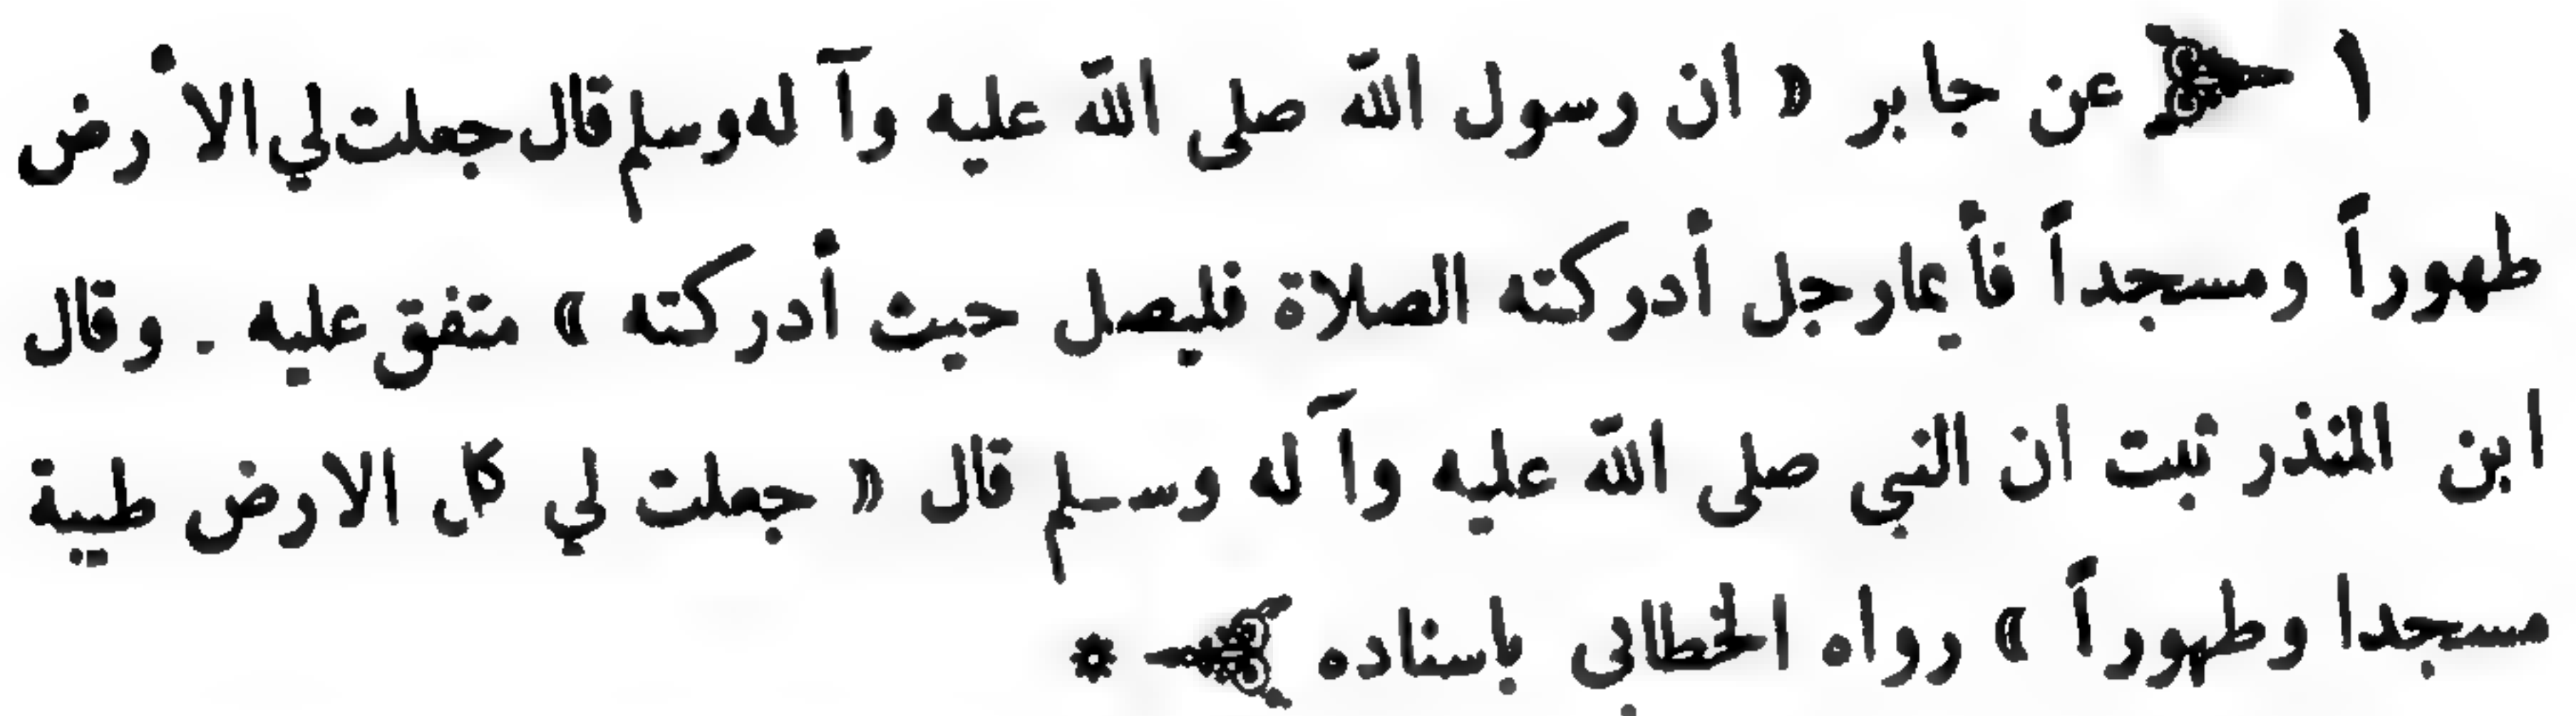 ١ ﴿ عن جابر « ان رسول الله صلى الله عليه وآله وسلم قال جعلت لي الأرض
طهوراً ومسجداً فأيما رجل أدركته الصلاة فليصل حيث أدركته » متفق عليه . وقال
ابن المنذر ثبت ان النبي صلى الله عليه وآله وسلم قال « جعلت لي كل الارض طيبة
مسجدا وطهوراً » رواه الخطابي باسناده ﴾ *